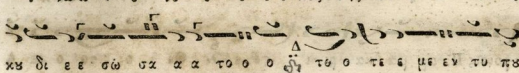 κυ δι ε ε σώ σα α α το ο ο το ο τε ε με εν τυ πυ